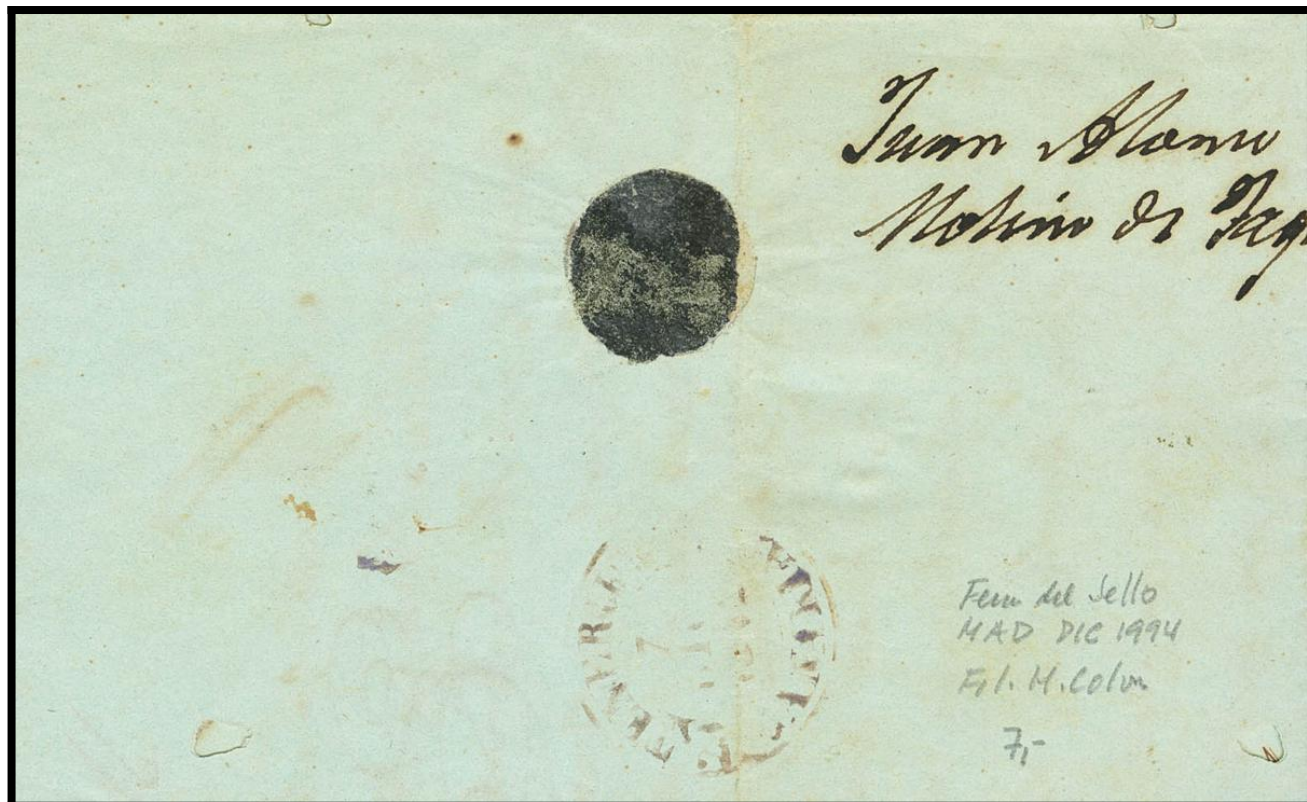 Juan Alonso
Molino de
Feria del Sello
MAD DIC 1994
Fil. M. Colon
7,-